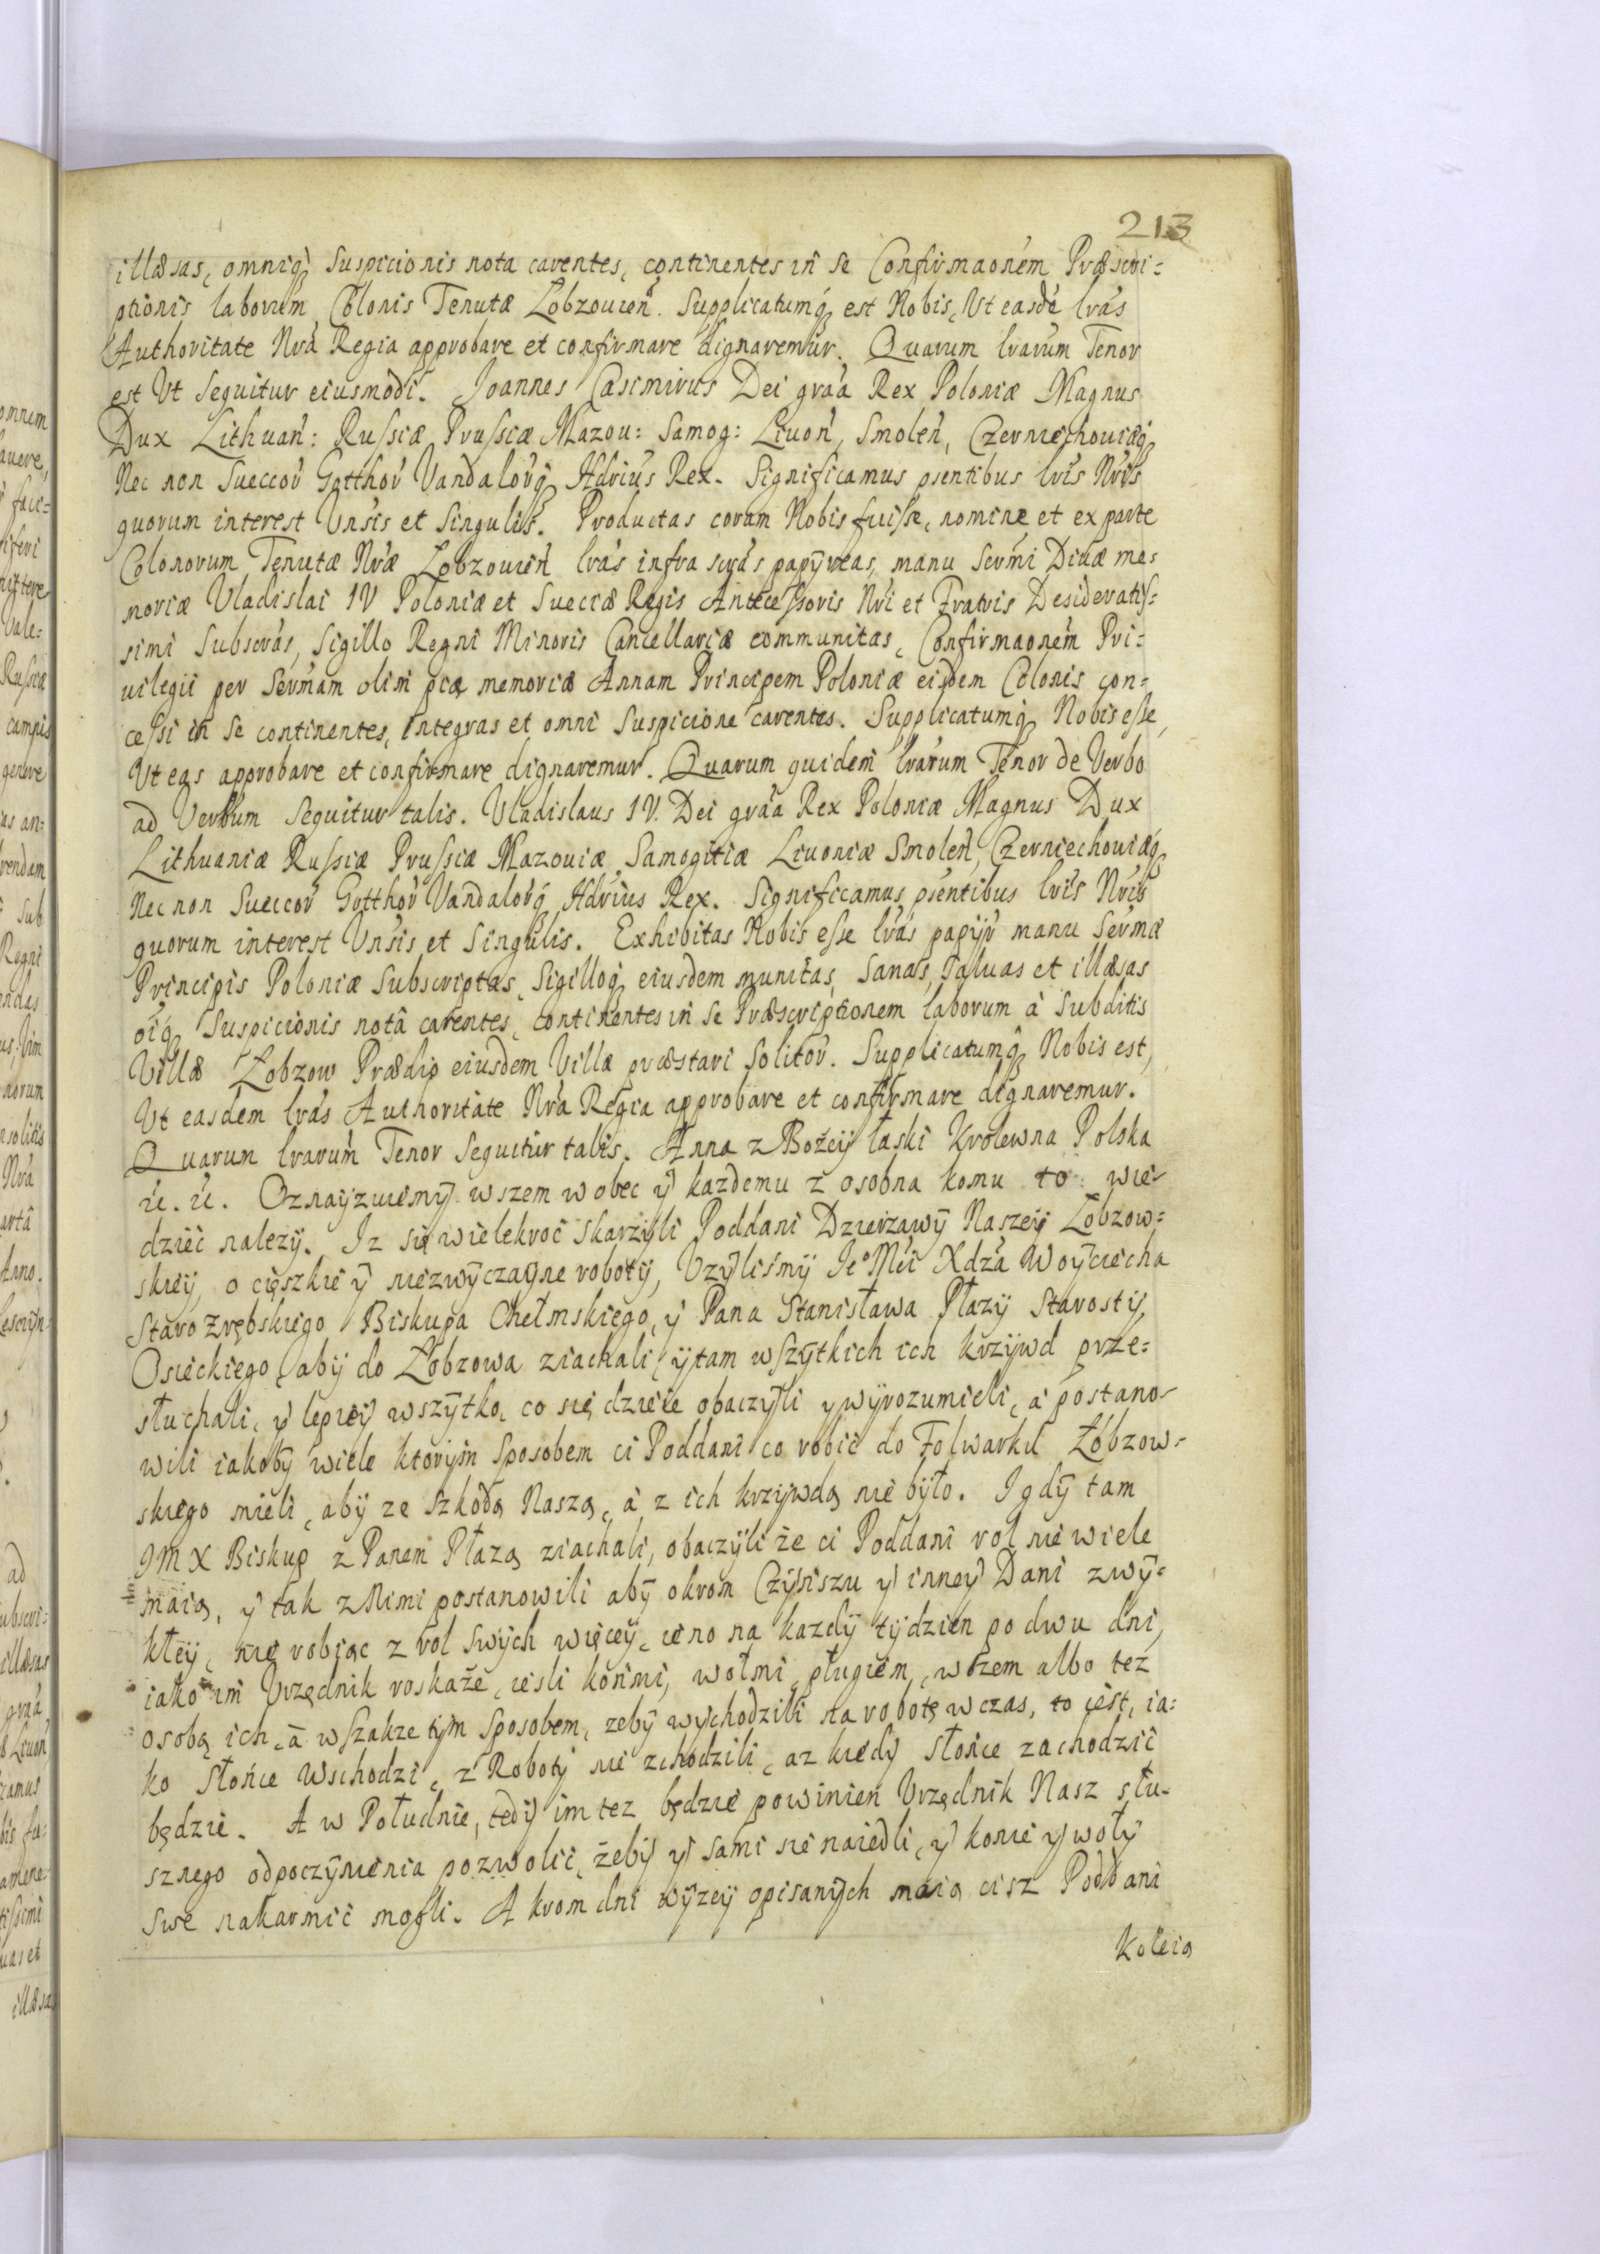 213
illæsas, omniq́ Suspicionis nota carentes, continentes in se Confirmaonem Præscri=
ptionis laborum Colonis Tenutæ Łobzouien. Supplicatumq́ est Nobis, Ut easdé lrás
Authoritate Nrá Regia approbare et confirmare dignaremur. Quarum lrarum Tenor
est Ut Sequitur eiusmodi. Joannes Casimirus Dei graá Rex Poloniæ Magnus
Dux Lithuan: Russiæ Prussiæ Mazou: Samog: Liuon, Smolen, Czerniechouiæq́
Nec non Sueccor Gotthor Vandalorq́ Hdrius Rex. Significamus psentibus lris Nris
quorum interest Vnsis et Singulis. Productas coram Nobis fuisse, nomine et ex parte
Colonorum Tenutæ Nræ Łobzouien lras infra scrás papyreas, manu Sermi Diuæ me=
moriæ Vladislai IV Poloniæ et Sueciæ Regis Antecessoris Nri et Fratris Desideratis=
simi Subscrás, Sigillo Regni Minoris Cancellariæ communitas, Confirmaonem Pri=
uilegii per Sermam olim piæ memoriæ Annam Principem Poloniæ eisdem Colonis con=
cessi in Se continentes, integras et omni Suspicione carentes. Supplicatumq́ Nobis esse,
Ut eas approbare et confirmare dignaremur. Quarum quidem lrarum Tenor de Verbo
ad Verbum Sequitur talis. Vladislaus IV. Dei graá Rex Poloniæ Magnus Dux
Lithuaniæ Russiæ Prussiæ Mazouiæ, Samogitiæ Liuoniæ Smolen, Czerniechouiæq́
Nec non Sueccor Gotthor Vandalorq́ Hdrius Rex. Significamus psentibus lris Nris
quorum interest Vnsis et Singulis. Exhibitas Nobis esse lrás papyr manu Sermæ
Principis Poloniæ Subscriptas, Sigilloq́ eiusdem munitas, Sanas, Saluas et illæsas
oiq́ Suspicionis notâ carentes, continentes in se Præscriptionem laborum à Subditis
Villæ Łobzow Prædio eiusdem Villæ præstari Solitor. Supplicatumq́ Nobis est,
Ut easdem lrás Authoritate Nrá Regia approbare et confirmare dignaremur.
Quarum lrarum Tenor Sequitur talis. Anna z Bożey łaski Krolewna Polska
&c. &c. Oznaÿzuiemÿ wszem wobec ÿ każdemu z osobna komu to wie=
dzieć nalezÿ. Iz się wielekroć skarzÿli Poddani Dzierzawÿ Naszeÿ Łobzow=
skieÿ, o cięszkie ÿ niezwÿczaÿne robotÿ, Vzÿlismÿ Ie°Mći Xdzá Woÿciecha
Staro Zrębskiego Biskupa Chełmskiego, ÿ Pana Stanisława Płazÿ Starostÿ
Osieckiego, abÿ do Łobzowa ziachali, ÿ tam wszÿtkich ich krzÿwd prze=
słuchali, ÿ lepieÿ wszÿtko, co się dzieie obaczÿli ÿ wÿrozumieli, à postano=
wili iakobÿ wiele ktorÿm Sposobem ci Poddani co robić do Folwarku Łobzow=
skiego mieli, abÿ ze szkodą Naszą, à z ich krzÿwdą nie bÿło. I gdÿ tam
JM X Biskup z Panem Płazą ziachali, obaczÿli że ci Poddani rol nie wiele
maią, ÿ tak z Nimi postanowili abÿ okrom Czÿnszu ÿ inneÿ Dani zwÿ=
kłeÿ, nie robiąc z rol swÿch więceÿ, ieno na kazdÿ tÿdzien po dwu dni,
iako im Vrzędnik roskaże, iesli końmi, wołmi, pługiem, wozem albo tez
osobą ich, à wszakze tÿm Sposobem, zebÿ wÿchodzili na robotę wczas, to iest, ia=
ko Słońce Wschodzi, z Robotÿ nie zchodzili, az kiedÿ słońce zachodzić
będzie. A w Południe, tedÿ im tez będzie powinien Vrzędnik Nasz słu=
sznego odpoczÿnienia pozwolić, żebÿ ÿ sami sie naiedli, ÿ konie ÿ wołÿ
swe nakarmić mogli. A krom dni wÿzeÿ opisanÿch maią cisz Poddani
Koleią